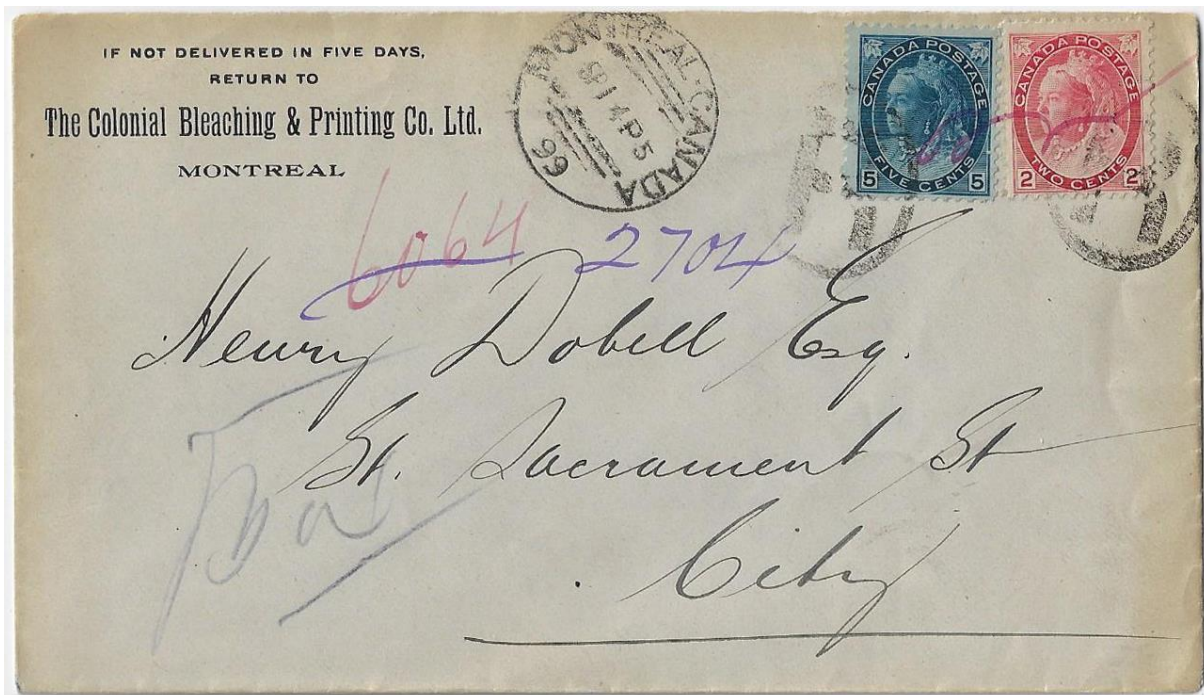 IF NOT DELIVERED IN FIVE DAYS,
RETURN TO
The Colonial Bleaching & Printing Co. Ltd.
MONTREAL
MONTREAL·CANADA
SP 14 P5
99
CANADA POSTAGE
FIVE CENTS
5 5
CANADA POSTAGE
TWO CENTS
2 2
R
6064 2704
Henry Dobell Esq.
St. Sacrament St
City